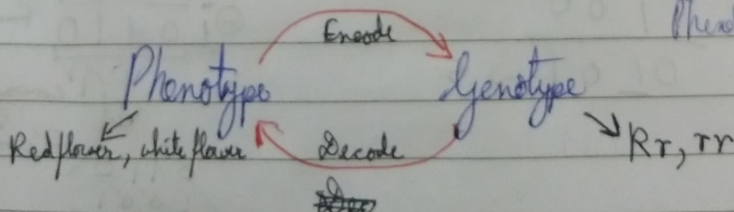 Encode
Phenotype Genotype
Red flower, white flower Decode Rr, rr